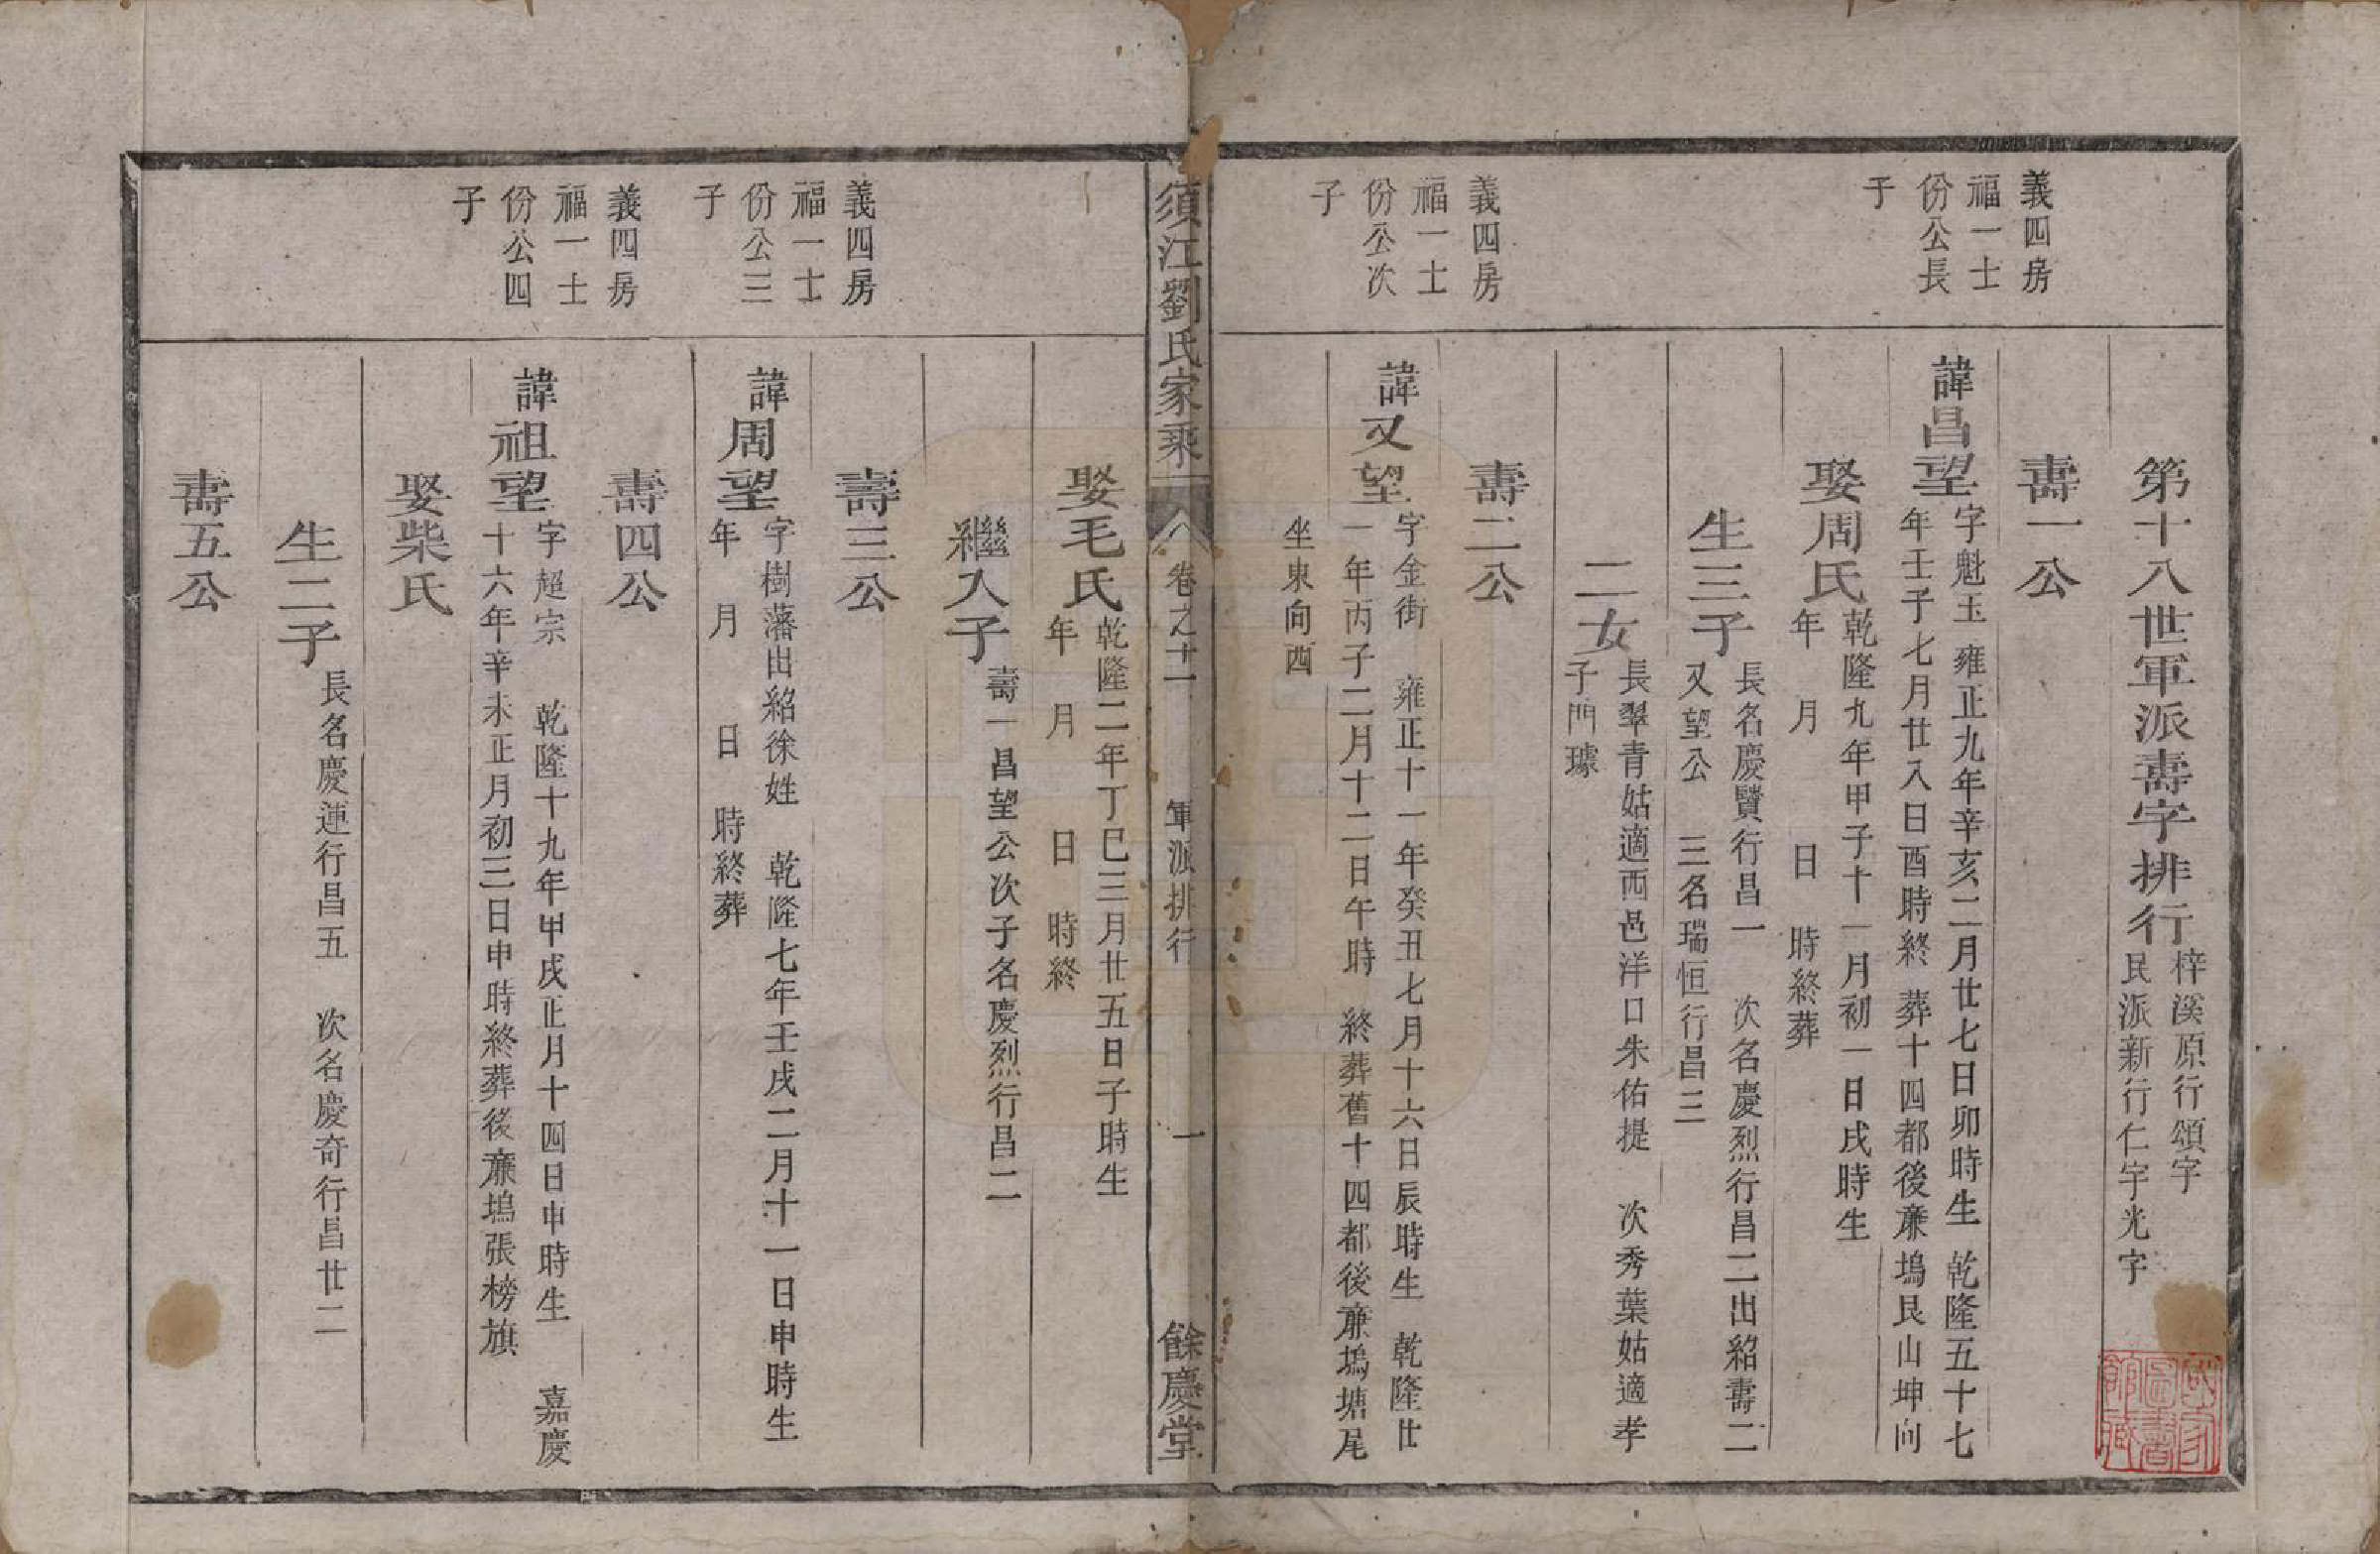 第十八世軍派壽字排行
梓溪原行頌字
民派新行仁字光字
壽一公
義四房
福一士
份公長
子
諱昌望
字魁玉 雍正九年辛亥二月廿七日卯時生 乾隆五十七
年壬子七月廿八日酉時終 葬十四都後㢘塢艮山坤向
娶周氏
乾隆九年甲子十一月初一日戌時生
年 月 日 時終葬
生三子
長名慶賢行昌一 次名慶烈行昌二出紹壽二
又望公 三名瑞恒行昌三
二女
長翠青姑適西邑洋口朱佑提 次秀葉姑適孝
子門璩
壽二公
義四房
福一士
份公次
子
諱又望
字金街 雍正十一年癸丑七月十六日辰時生 乾隆廿
一年丙子二月十二日午時 終葬舊十四都後㢘塢塘尾
坐東向西
須江劉氏家乘
卷之十一
軍派排行
一
餘慶堂
娶毛氏
乾隆二年丁巳三月廿五日子時生
年 月 日 時終
繼入子
壽一昌望公次子名慶烈行昌二
壽三公
義四房
福一士
份公三
子
諱周望
字樹藩出紹徐姓 乾隆七年壬戌二月十一日申時生
年 月 日 時終葬
壽四公
義四房
福一士
份公四
子
諱祖望
字超宗 乾隆十九年甲戌正月十四日申時生 嘉慶
十六年辛未正月初三日申時終葬後㢘塢張榜旗
娶柴氏
生二子
長名慶連行昌五 次名慶奇行昌廿二
壽五公